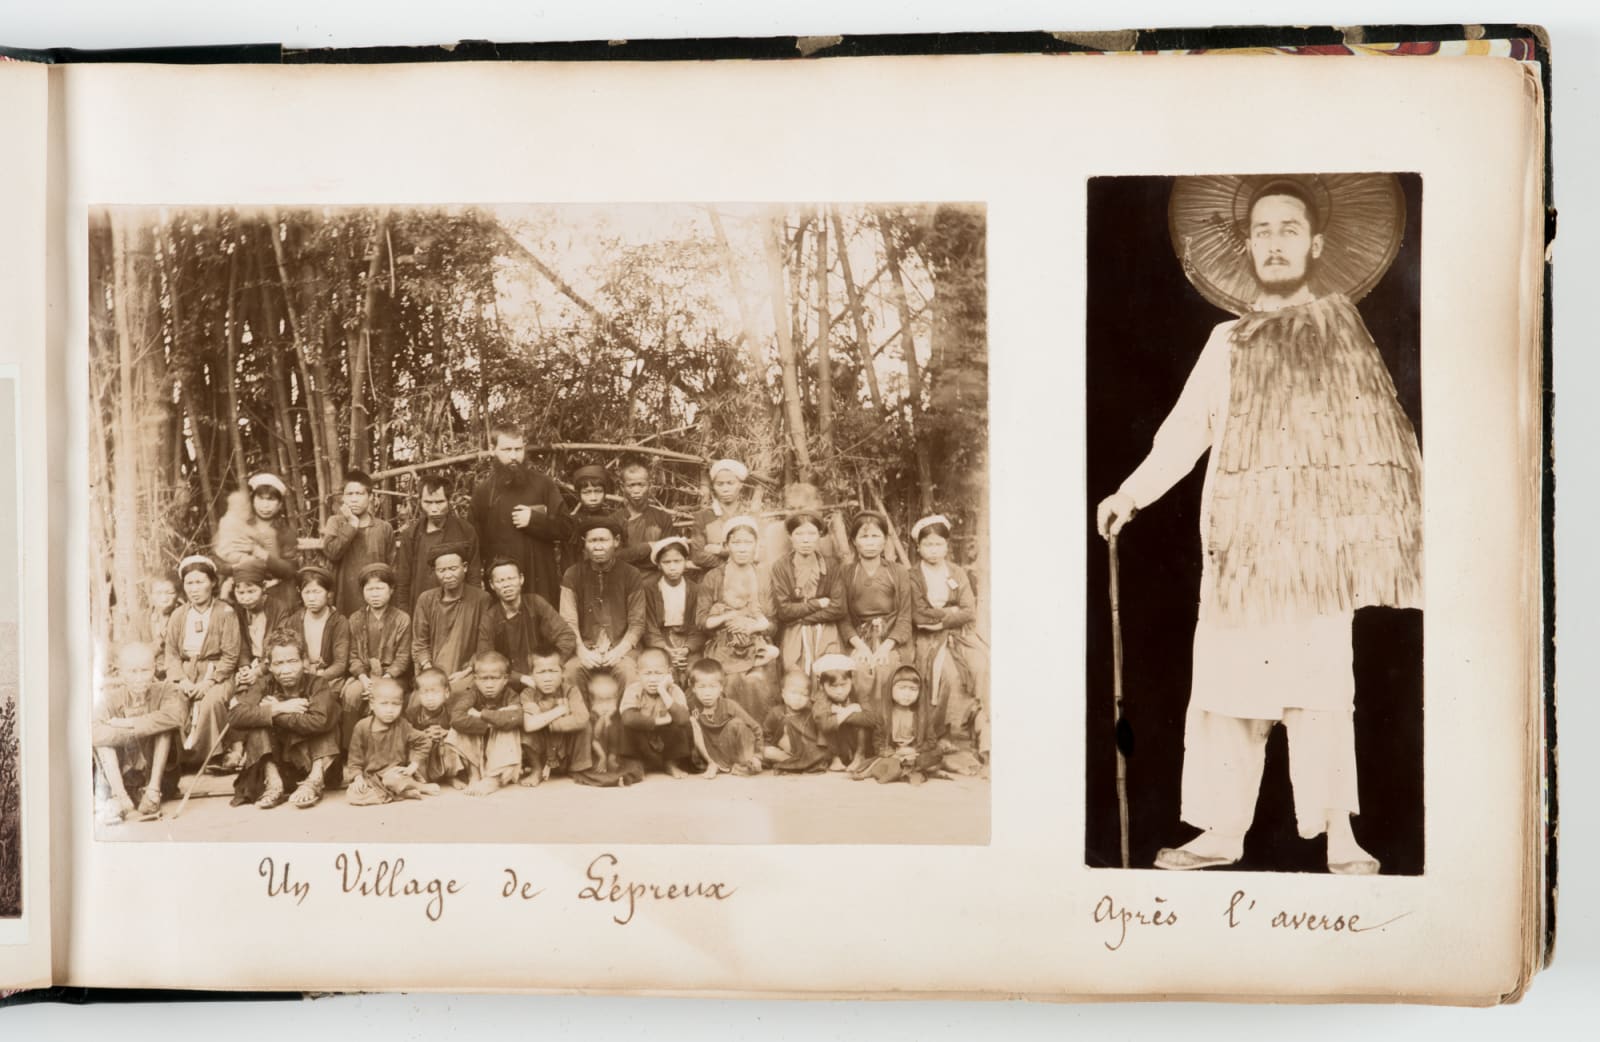 Un Village de Lépreux
Après l'averse.